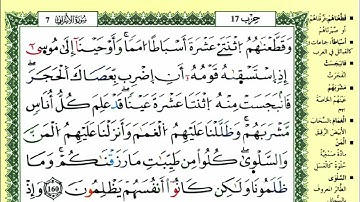 حزب 17
سُورَةُ الأَعْرَافِ 7
وَقَطَّعْنَٰهُمُ ٱثْنَتَىْ عَشْرَةَ أَسْبَاطًا أُمَمًا ۚ وَأَوْحَيْنَآ إِلَىٰ مُوسَىٰٓ
إِذِ ٱسْتَسْقَىٰهُ قَوْمُهُۥٓ أَنِ ٱضْرِب بِّعَصَاكَ ٱلْحَجَرَ ۖ
فَٱنۢبَجَسَتْ مِنْهُ ٱثْنَتَا عَشْرَةَ عَيْنًا ۖ قَدْ عَلِمَ كُلُّ أُنَاسٍ
مَّشْرَبَهُمْ ۚ وَظَلَّلْنَا عَلَيْهِمُ ٱلْغَمَٰمَ وَأَنزَلْنَا عَلَيْهِمُ ٱلْمَنَّ
وَٱلسَّلْوَىٰ ۖ كُلُوا۟ مِن طَيِّبَٰتِ مَا رَزَقْنَٰكُمْ ۚ وَمَا
ظَلَمُونَا وَلَٰكِن كَانُوٓا۟ أَنفُسَهُمْ يَظْلِمُونَ ١٦٠ وَإِذْ
قَطَّعْنَاهُمْ: فَرَّقْنَاهُمْ
أو صيّرناهم
أَسْبَاطًا: جماعات
كالقبائل في العرب
فَانْبَجَسَتْ
انفجرت
مَشْرَبَهُمْ
عينهم الخاصة
بهم
الْغَمَامَ: السحاب
الأبيض الرقيق
الْمَنَّ
مادة صمغية
حلوة كالعسل
السَّلْوَى
الطائر المعروف
بالسمانى